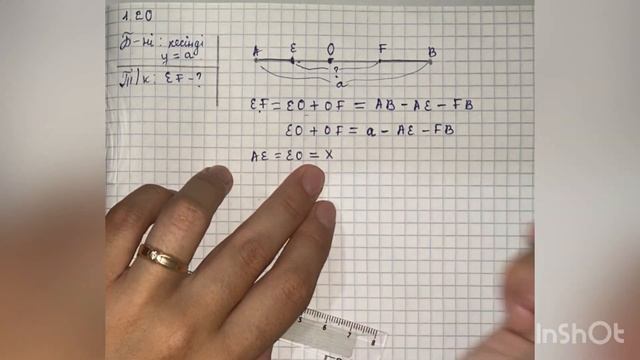 1.20
Б-ні: кесінді
y = a
Т/к: EF - ?
A E O F B
?
a
EF = EO + OF = AB - AE - FB
EO + OF = a - AE - FB
AE = EO = x
5 6 7 8
InShOt